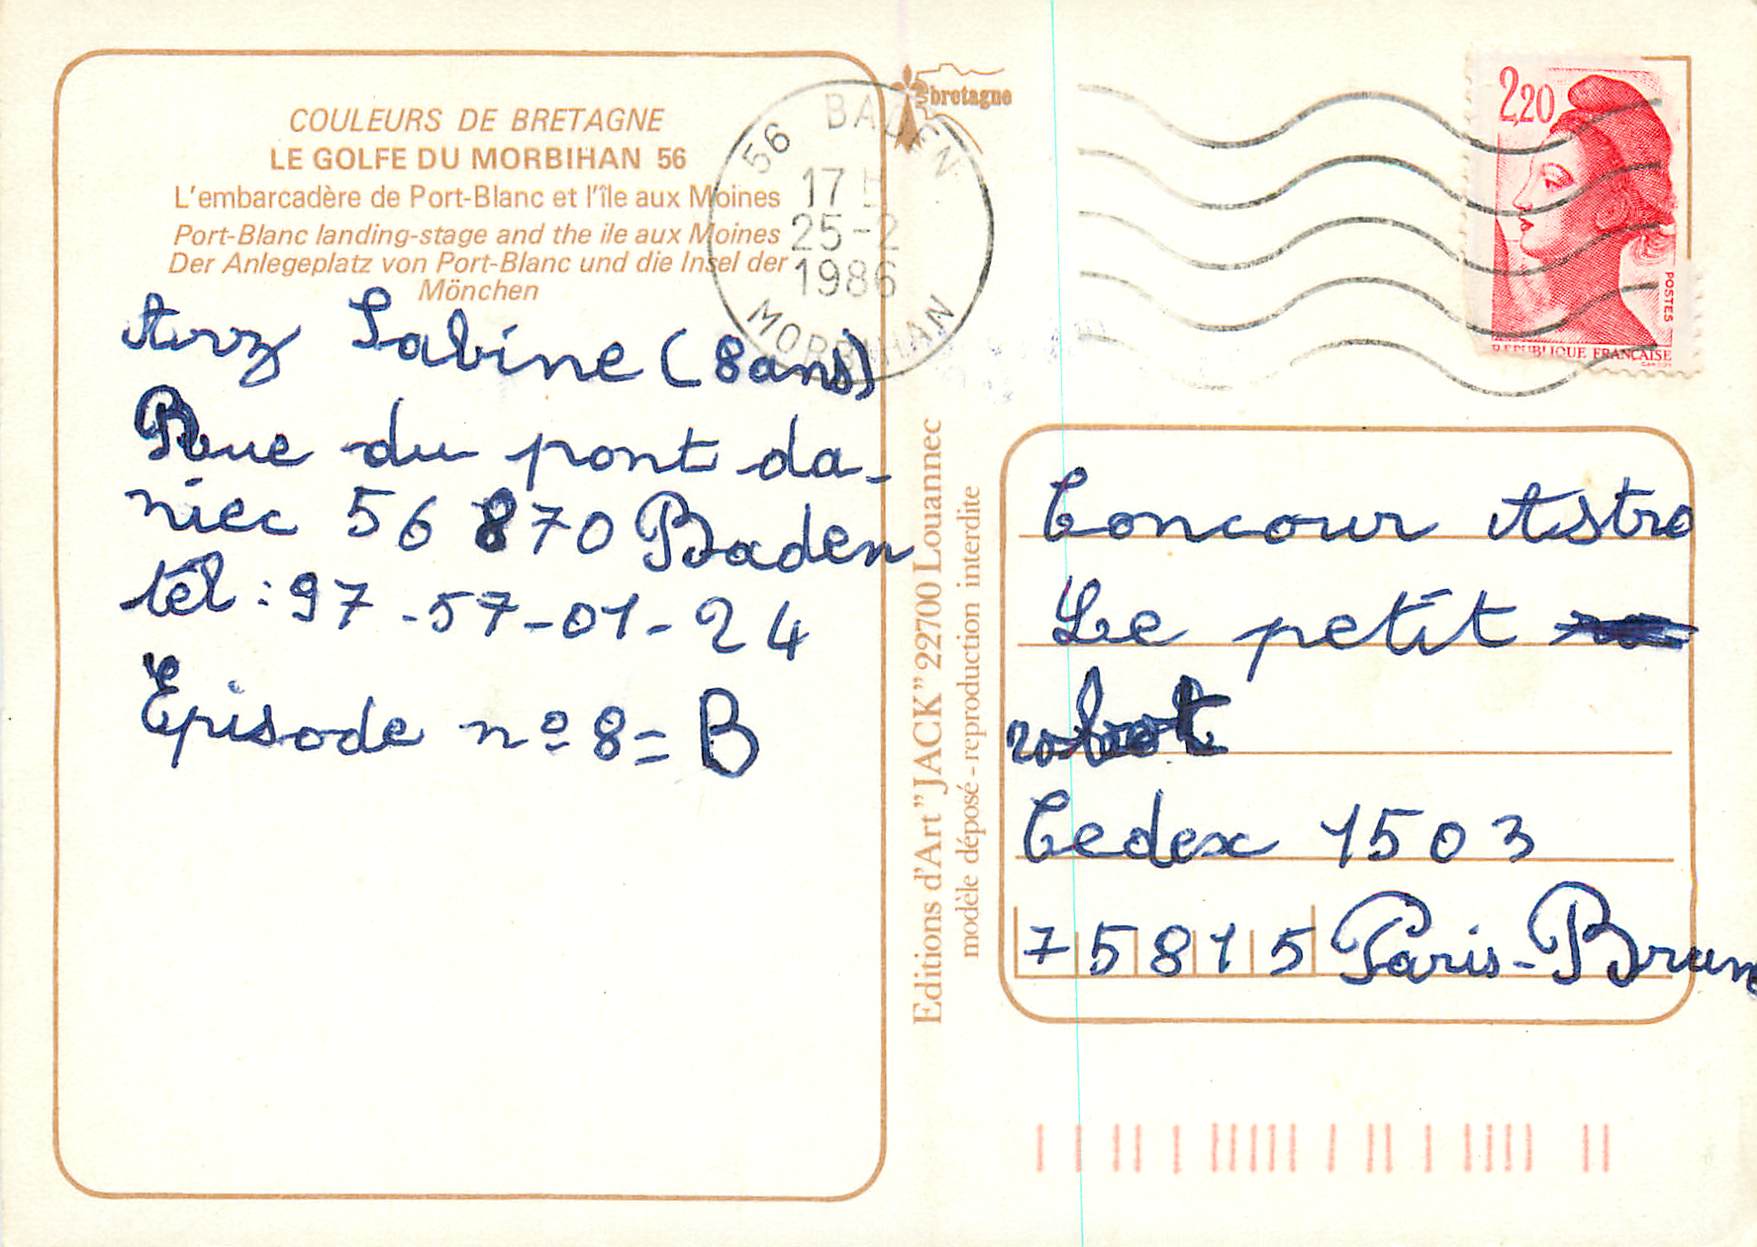 COULEURS DE BRETAGNE
LE GOLFE DU MORBIHAN 56
L'embarcadère de Port-Blanc et l'île aux Moines
Port-Blanc landing-stage and the ile aux Moines
Der Anlegeplatz von Port-Blanc und die Insel der
Mönchen
Arz Sabine (8ans)
Rue du pont da-
niec 56 870 Baden
tél : 97-57-01-24
Episode nº 8 = B
Editions d'Art "JACK" 22700 Louannec
modèle déposé - reproduction interdite
bretagne
56 BADEN
17 H
25-2
1986
MORBIHAN
2,20
POSTES
REPUBLIQUE FRANCAISE
Concour Astro
Le petit
robot
Cedex 1503
75815 Paris-Brune